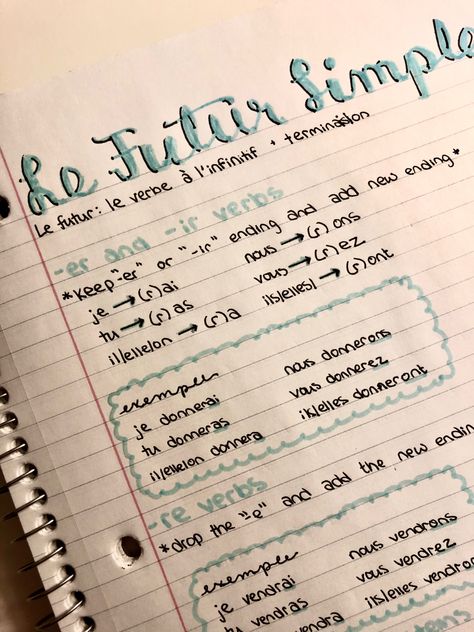 Le Futur Simple
Le futur: le verbe à l'infinitif + terminaision
-er and -ir verbs
*keep "-er" or "-ir" ending and add new ending*
je → (r)ai nous → (r)ons
tu → (r)as vous → (r)ez
il/elle/on → (r)a ils/elles/ → (r)ont
exemple
je donnerai nous donnerons
tu donneras vous donnerez
il/elle/on donnera ils/elles donneront
-re verbs
*drop the "-e" and add the new ending
exemple
je vendrai nous vendrons
tu vendras vous vendrez
ils/elles vendron